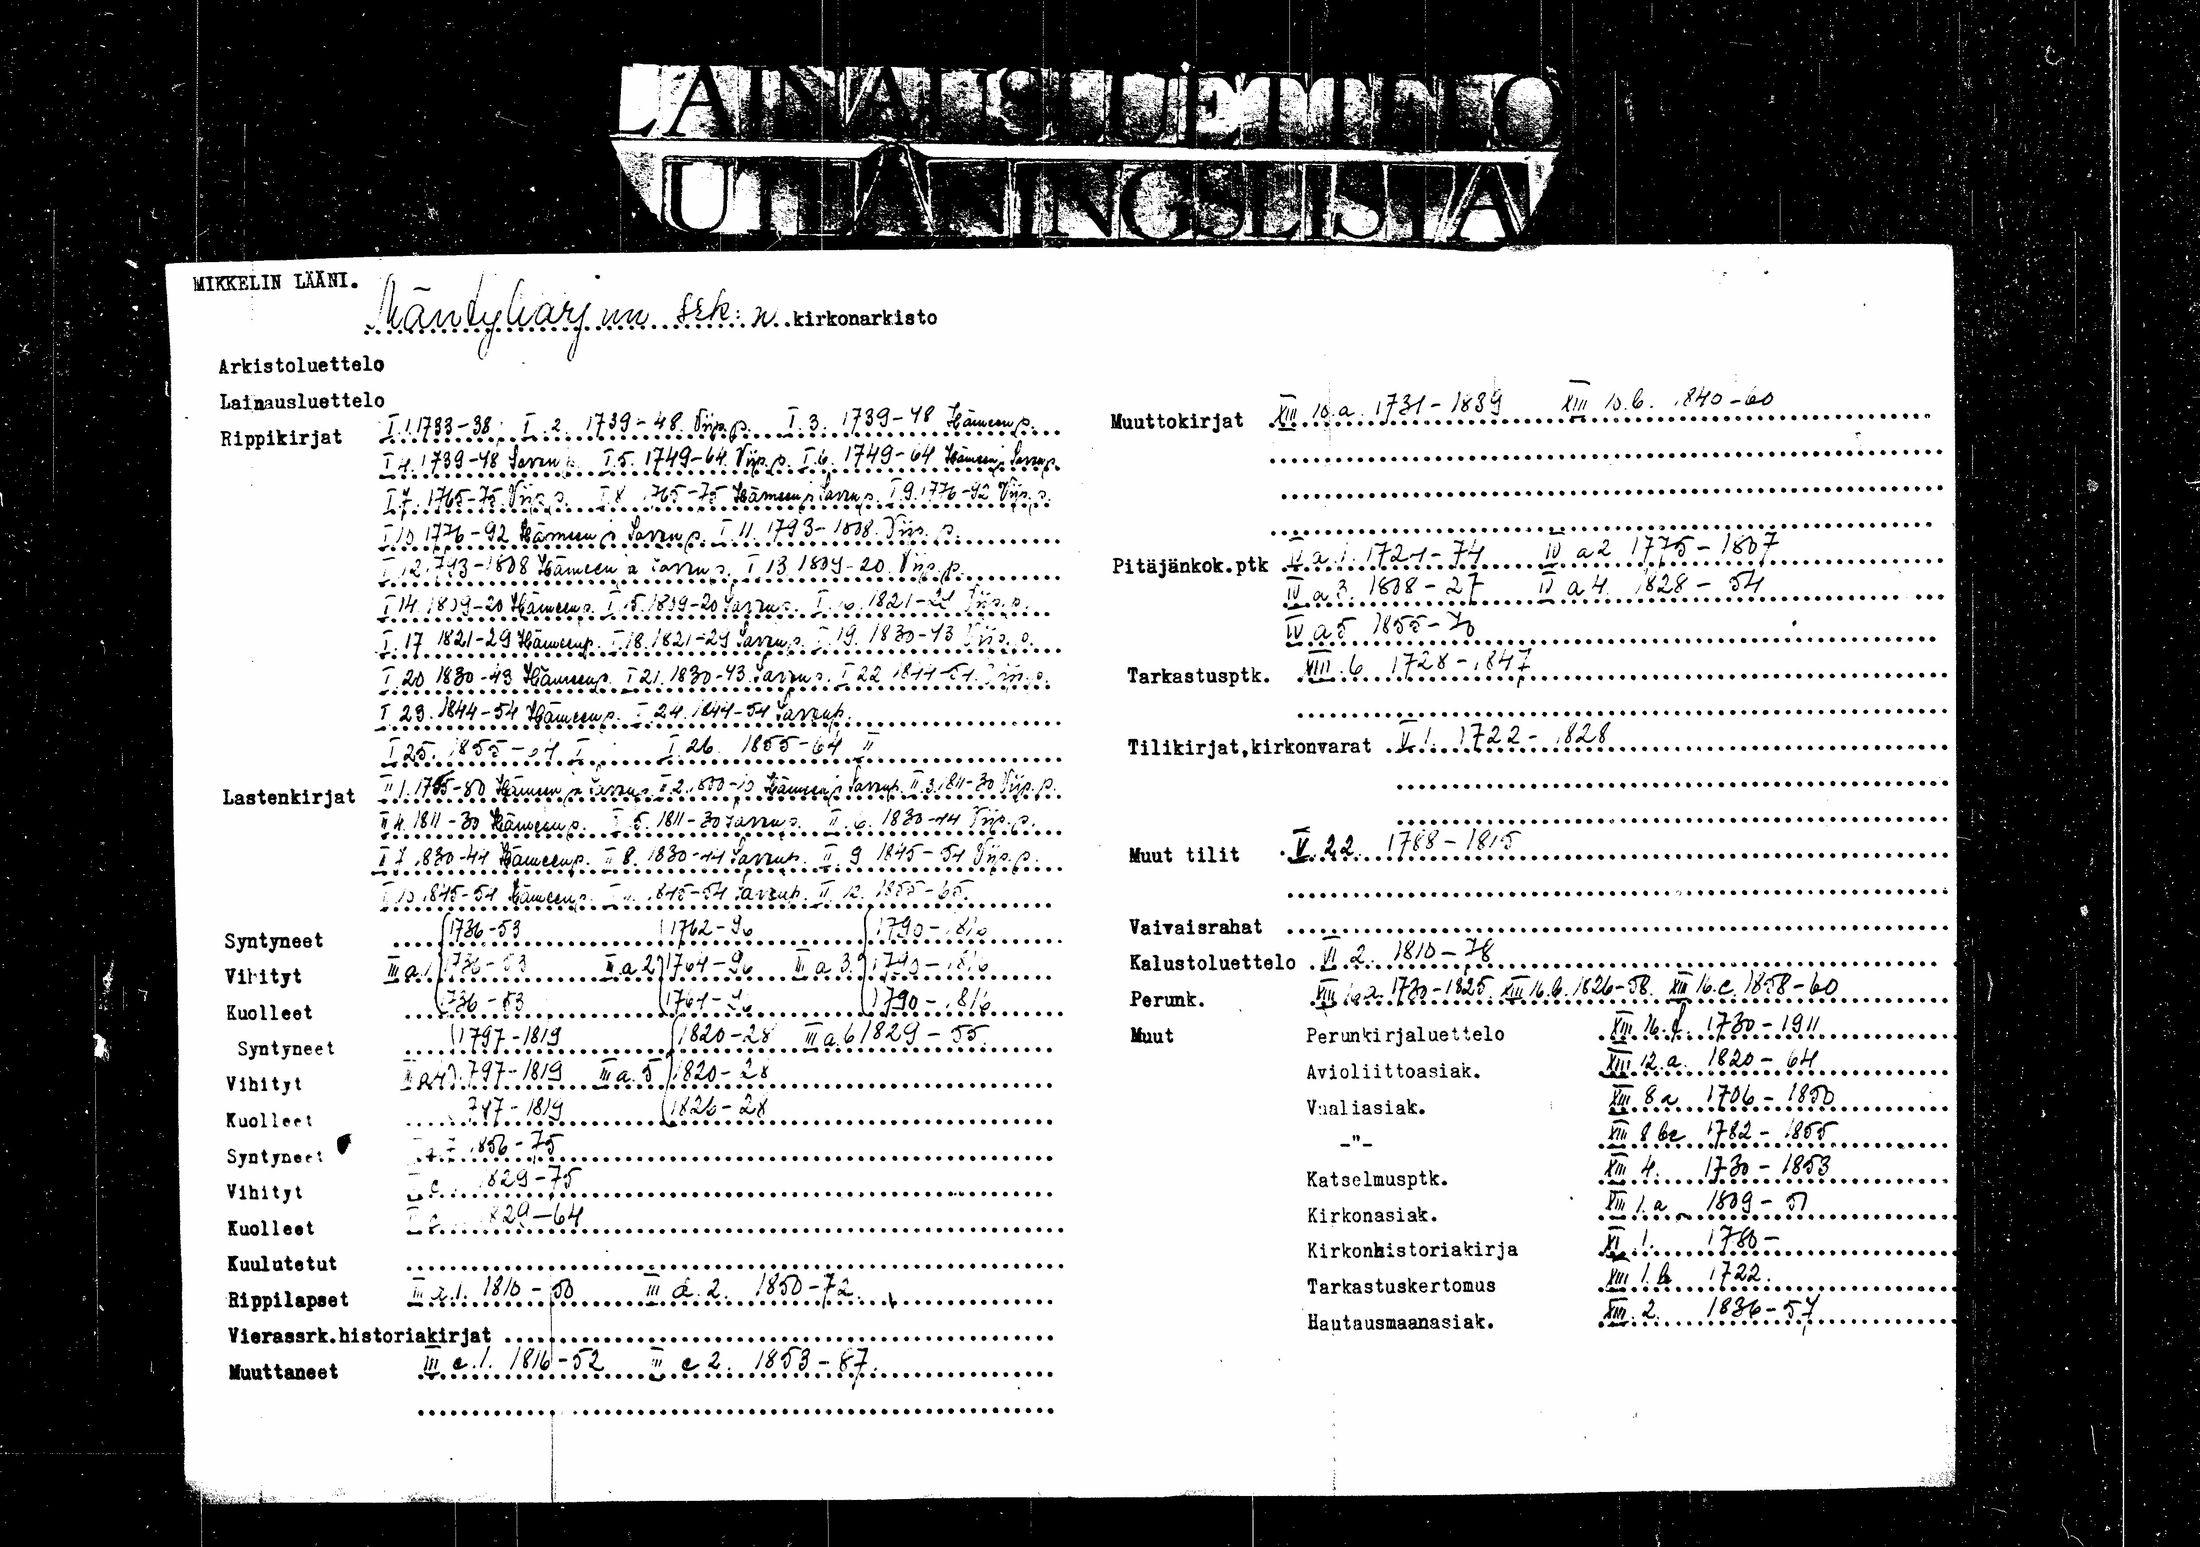 LAINAUSLUETTELO
UTLÅNINGSLISTA
MIKKELIN LÄÄNI.
Mäntyharjun srk:n kirkonarkisto
Arkistoluettelo
Lainausluettelo
Rippikirjat I.1.1733-38 I.2. 1739-48. Viip.p. I.3. 1739-48 Hämeen p.
I 4. 1739-48 Savon p. I.5. 1749-64. Viip.p. I.6. 1749-64 Hämeen ja Savon p.
I 7. 1765-75 Viip.p. I 8. 1765-75 Hämeen ja Savon p. I 9. 1776-92 Viip.p.
I 10 1776-92 Hämeen ja Savon p. I 11. 1793-1808. Viip.p.
I 12. 1793-1808 Hämeen ja Savon p. I 13 1809-20. Viip.p.
I 14. 1809-20 Hämeen p. I 15. 1809-20 Savon p. I 16. 1821-29 Viip.p.
I 17 1821-29 Hämeen p. I 18. 1821-29 Savon p. I 19. 1830-43 Viip.p.
I 20 1830-43 Hämeen p. I 21. 1830-43. Savon p. I 22 1844-54. Viip.p.
I 23. 1844-54 Hämeen p. I 24. 1844-54 Savon p.
I 25. 1855-64 I I 26. 1855-64 II
Lastenkirjat II 1. 1755-80 Hämeen ja Savon p. II 2. 1800-10 Hämeen ja Savon p. II 3. 1811-30 Viip.p.
II 4. 1811-30 Hämeen p. II 5. 1811-30 Savon p. II 6. 1830-44 Viip.p.
II 7. 1830-44 Hämeen p. II 8. 1830-44 Savon p. II 9 1845-54 Viip.p.
II 10 1845-54 Hämeen p. II 11. 1845-54 Savon p. II 12. 1855-65.
Syntyneet 1736-53 1762-96 1790-1816
Vihityt III a.1 1736-53 III a 2 1764-96 III a 3. 1790-1816
Kuolleet 1736-53 1764-96 1790-1816
Syntyneet 1797-1819 1820-28 III a.6 1829-55.
Vihityt III a 4 1797-1819 III a. 5 1820-28
Kuolleet 1797-1819 1826-28
Syntyneet 1856-75
Vihityt 1829-75
Kuolleet 1829-64
Kuulutetut
Rippilapset 1810-50 1850-72.
Vierassrk.historiakirjat
Muuttaneet III c.1. 1816-52 III c 2. 1853-87.
Muuttokirjat XIII 10.a. 1731-1839 XIII 10.b. 1840-60
Pitäjänkok.ptk IV a 1. 1721-74 IV a 2 1775-1807
IV a 3. 1808-27 IV a 4. 1828-54
IV a 5 1855-70
Tarkastusptk. XIII.6 1728-1847
Tilikirjat,kirkonvarat V.1. 1722-1828
Muut tilit V.22. 1788-1815
Vaivaisrahat
Kalustoluettelo VI 2. 1810-78
Perunk. XIII 16.a. 1730-1825. XIII 16.b. 1826-58. XIII 16.c. 1858-60
Muut Perunkirjaluettelo XIII 16.d. 1730-1911
Avioliittoasiak. XIII 12.a. 1820-64
Vaaliasiak. XIII 8 a 1706-1850
-"- XIII 8 bc 1782-1855
Katselmusptk. XIII 4. 1730-1853
Kirkonasiak. XIII 1.a 1809-51
Kirkonhistoriakirja XI 1. 1780-
Tarkastuskertomus XIII 1.b 1722.
Hautausmaanasiak. XIII. 2. 1836-57